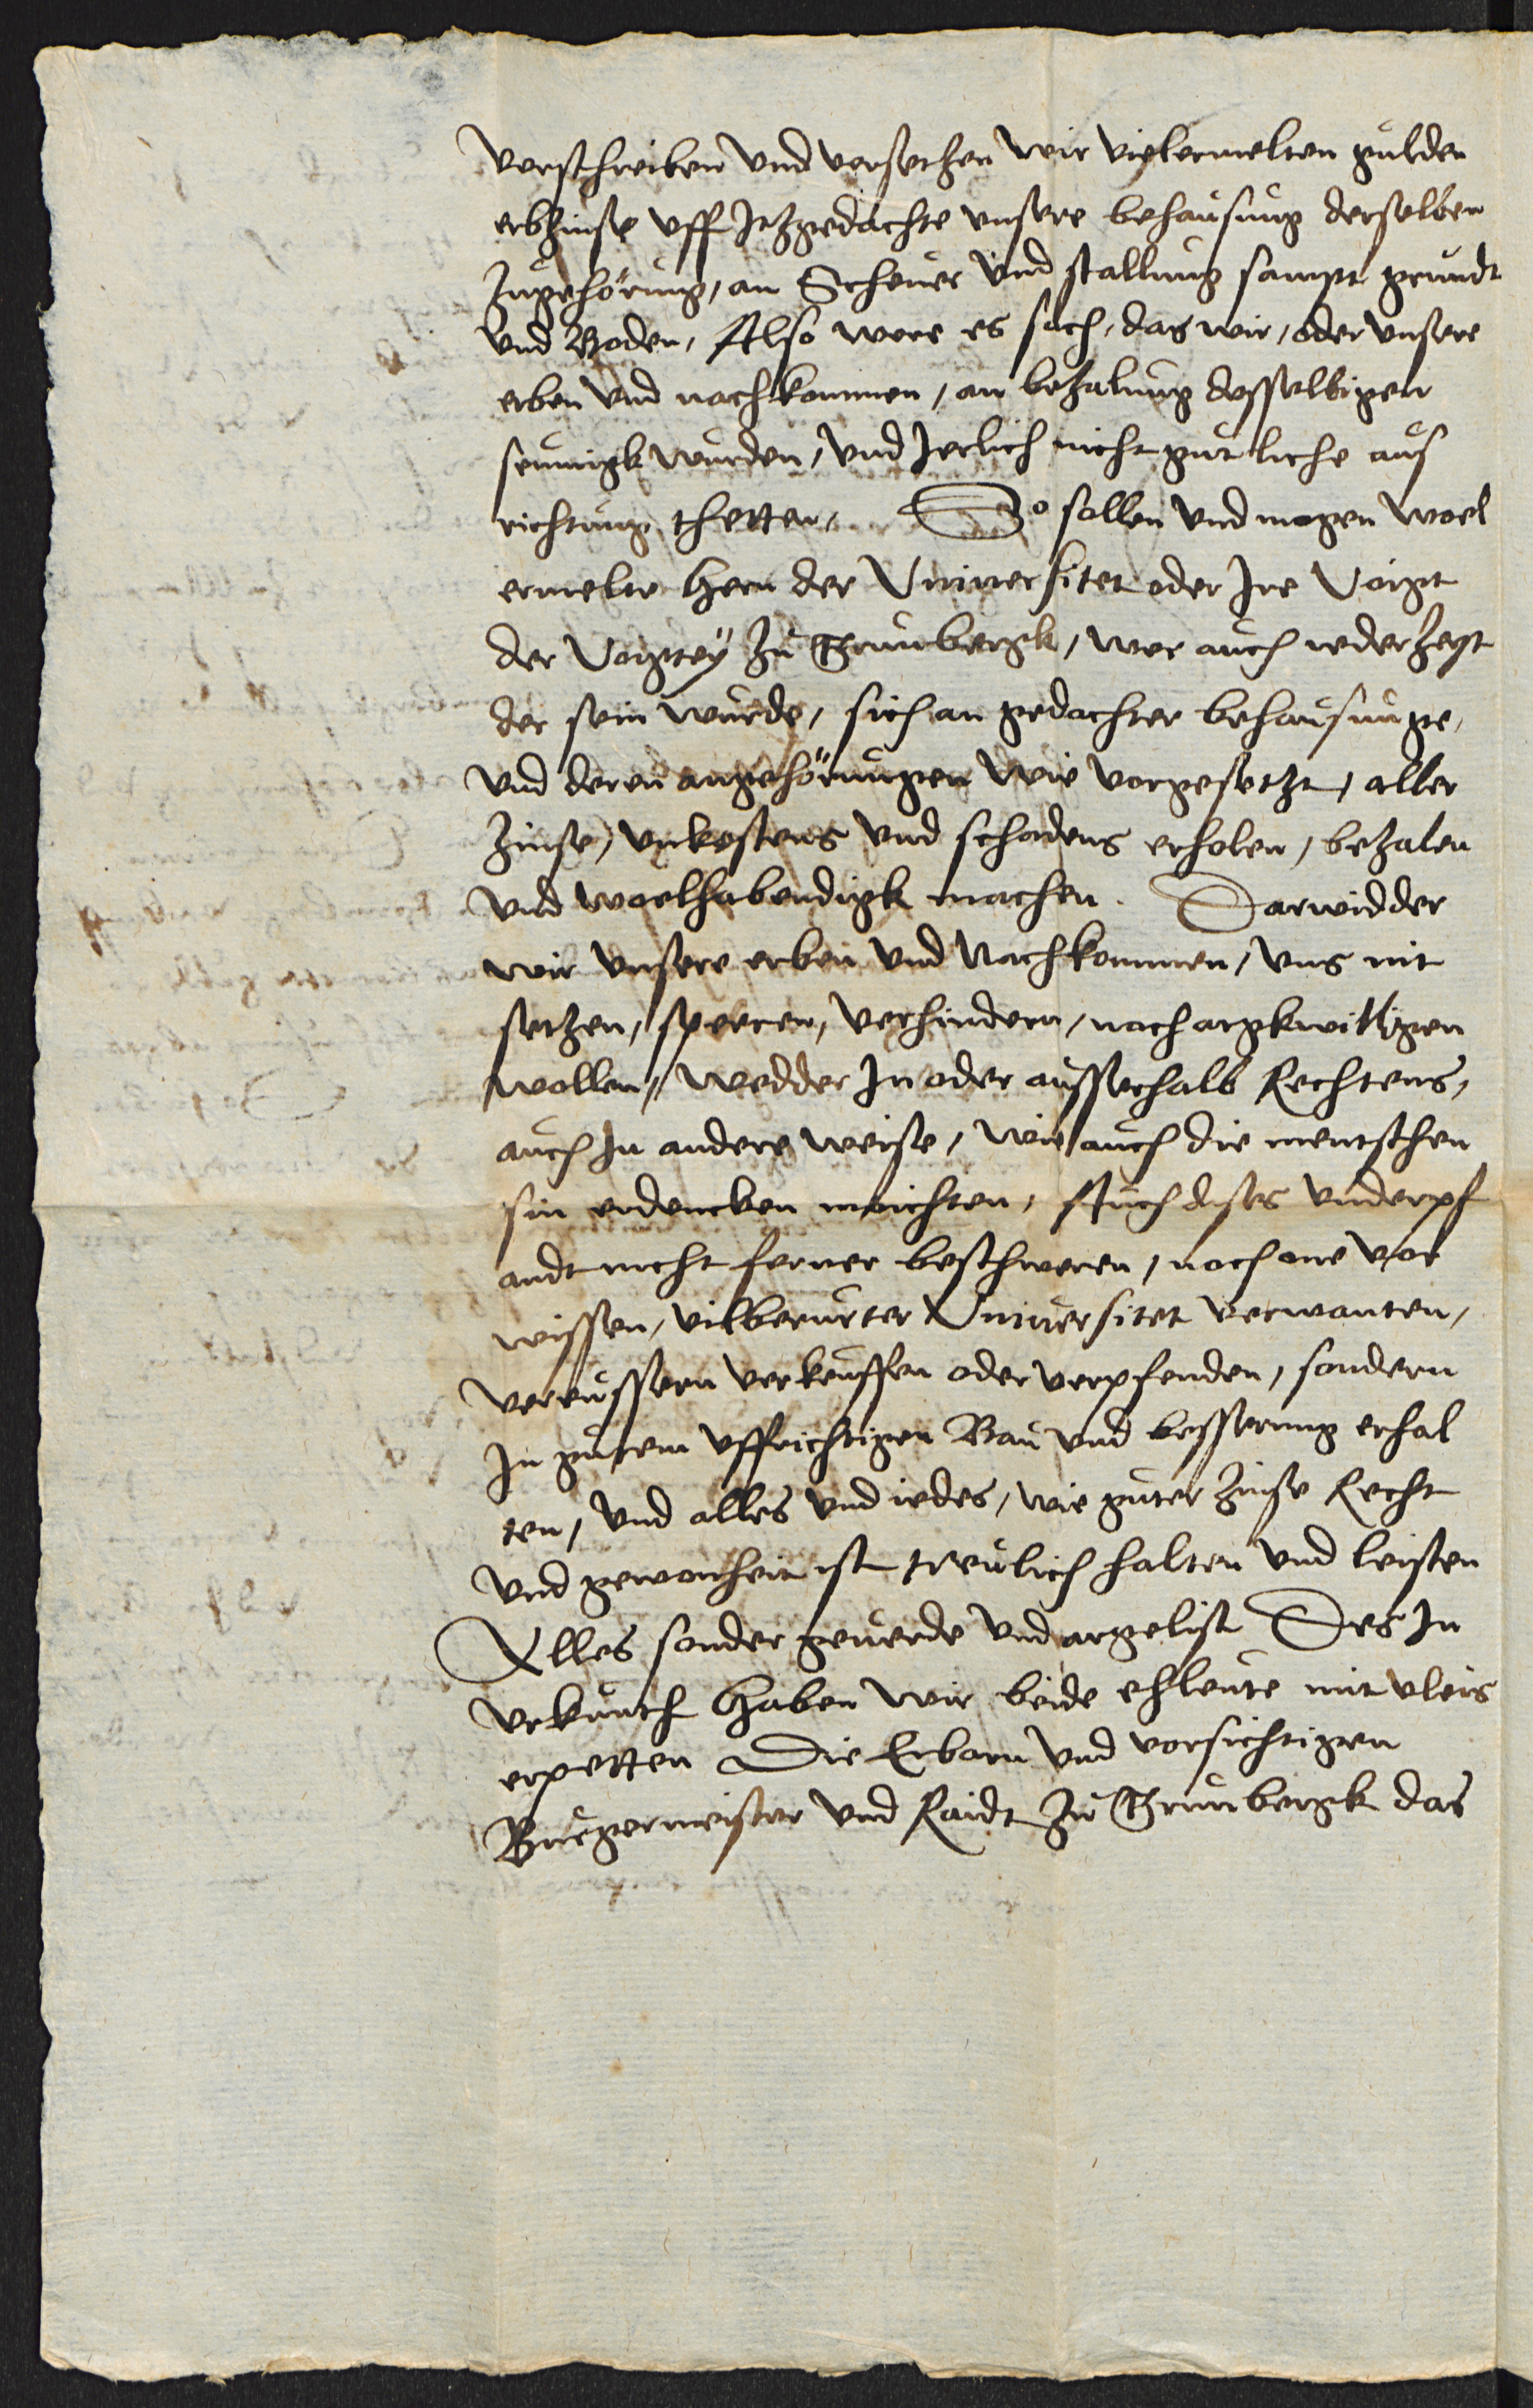 verschreiben und versetzen wir vielermelten gulden
erbzinse uff Itzgedachte unsere behausung derselben
zugehörung, an Scheuer und stallung sampt grundt
und Boden, Also were es sach, das wir, oder unsere
erben und nachkommen, an bezalung desselbigen
seumigk wurden, und Jerlich nicht gutliche aus
richtung thetten, So sollen und mogen woel
ermelte Hern der Universitet oder Ire Voigt
der Vogtey zu Grunbergk, wer auch ieder Zeyt
der sein wurde, sich an gedachter behausunge,
und deren angehörungen wie vorgesetzt, aller
Zinse, unkostens und schadens erholen, bezalen
und woelhabendigk machen. Darwidder
wir unsere erben und Nachkommen, uns nit
setzen, sperren, verhindern, nach argkwilligen
wollen, Wedder In oder ausserhalb Rechtens,
auch In andere weise, wie auch die mentschen
sin erdencken mochten, Auch dises underpf
andt nicht ferner beschweren, noch one vor
wissen, vilberurter Universitet verwanten,
vereussern verkeuffen oder verpfenden, sondern
In gutem uffrichtigen Bau und besserung erhal
ten, und alles und iedes, wie guter Zinse Recht
und gewonheit ist treulich halten und leisten
Alles sonder geuerde und argelist Des In
urkunth Haben wir beide ehleute mit vleis
erpetten Die Erbarn und vorsichtigen
Burgermeister und Raidt zu Grunbergk das